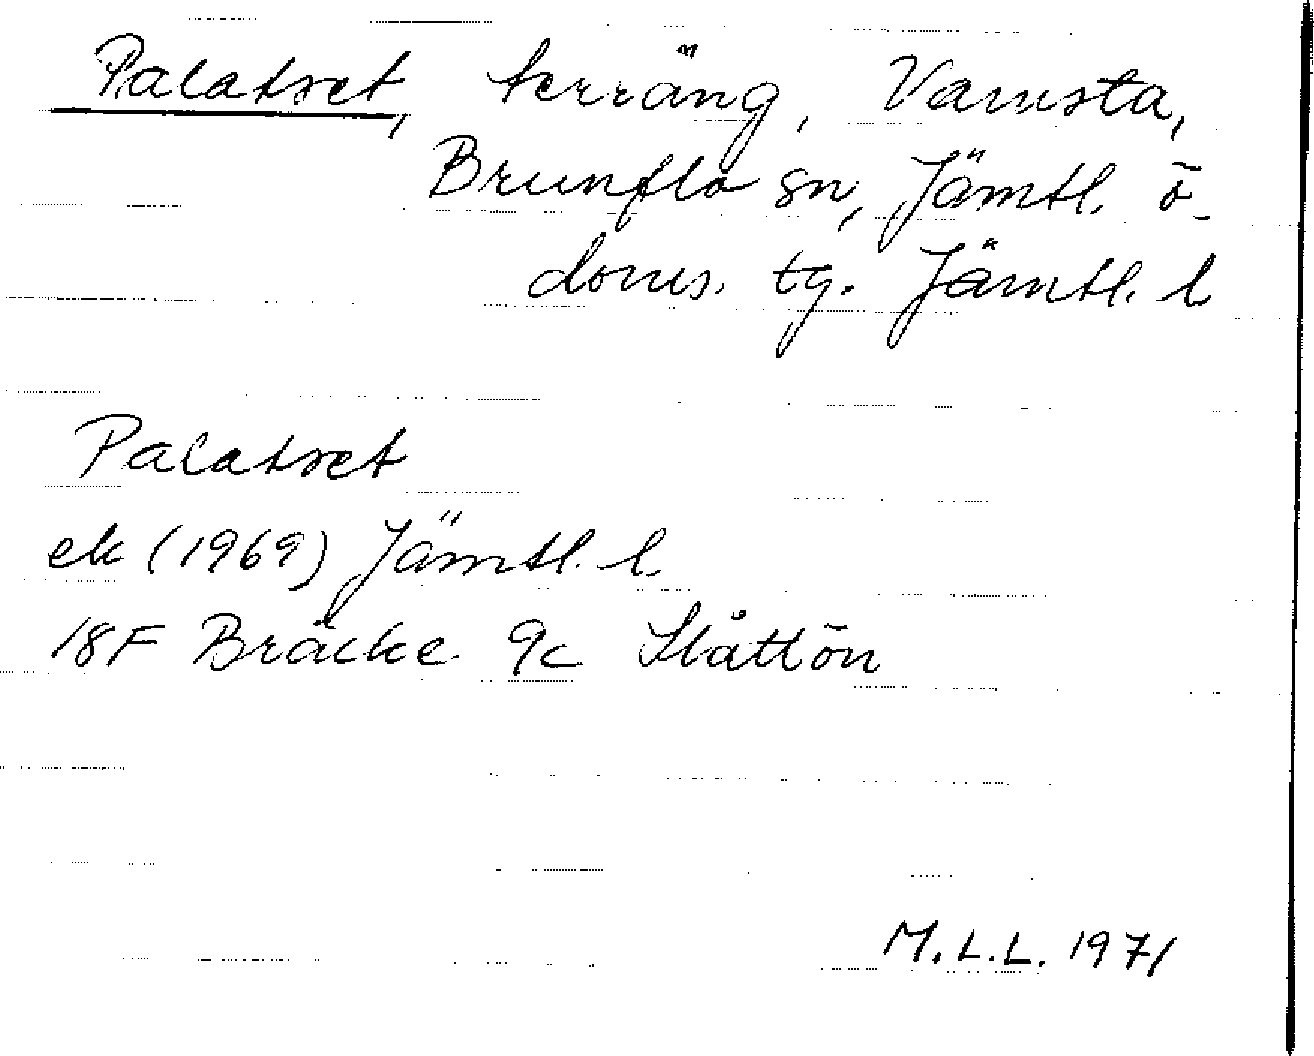 Palatset, terräng, Vamsta,
Brunflo sn, Jämtl. ö.
doms. tg. Jämtl. l
Palatset
ek (1969) Jämtl. l.
18F Bräcke 9c Slåttön
M.L.L. 1971